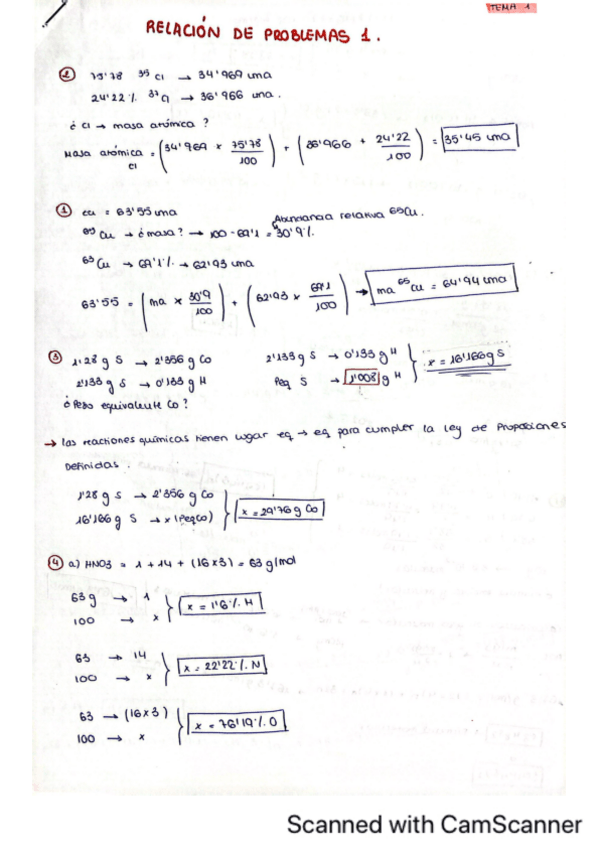 TEMA 1
RELACIÓN DE PROBLEMAS 1.
② 75'78 ³⁵Cl → 34'969 uma
24'22 %. ³⁷Cl → 36'966 uma.
¿ Cl → masa atómica ?
Masa atómica Cl = (34'969 × 75'78/100) + (36'966 + 24'22/100) = 35'45 uma
① Cu = 63'55 uma
Abundancia relativa ⁶⁵Cu.
⁶⁵Cu → ¿masa? → 100 - 69'1 = 30'9%.
⁶³Cu → 69'1% → 62'93 uma
63'55 = (ma × 30'9/100) + (62'93 × 69'1/100) → ma ⁶⁵Cu = 64'94 uma
③ 1'28 g S → 2'356 g Co 2'133 g S → 0'133 g H
2'133 g S → 0'133 g H Peq S → 1'008 g H x = 16'166 g S
¿ Peso equivalente Co ?
→ Las reacciones químicas tienen lugar eq → eq para cumplir la ley de Proporciones
Definidas.
1'28 g S → 2'356 g Co
16'166 g S → x (Peq Co) x = 29'76 g Co
④ a) HNO3 = 1 + 14 + (16×3) = 63 g/mol
63 g → 1
100 → x x = 1'6 %. H
63 → 14
100 → x x = 22'22 %. N
63 → (16×3)
100 → x x = 76'19 %. O
Scanned with CamScanner